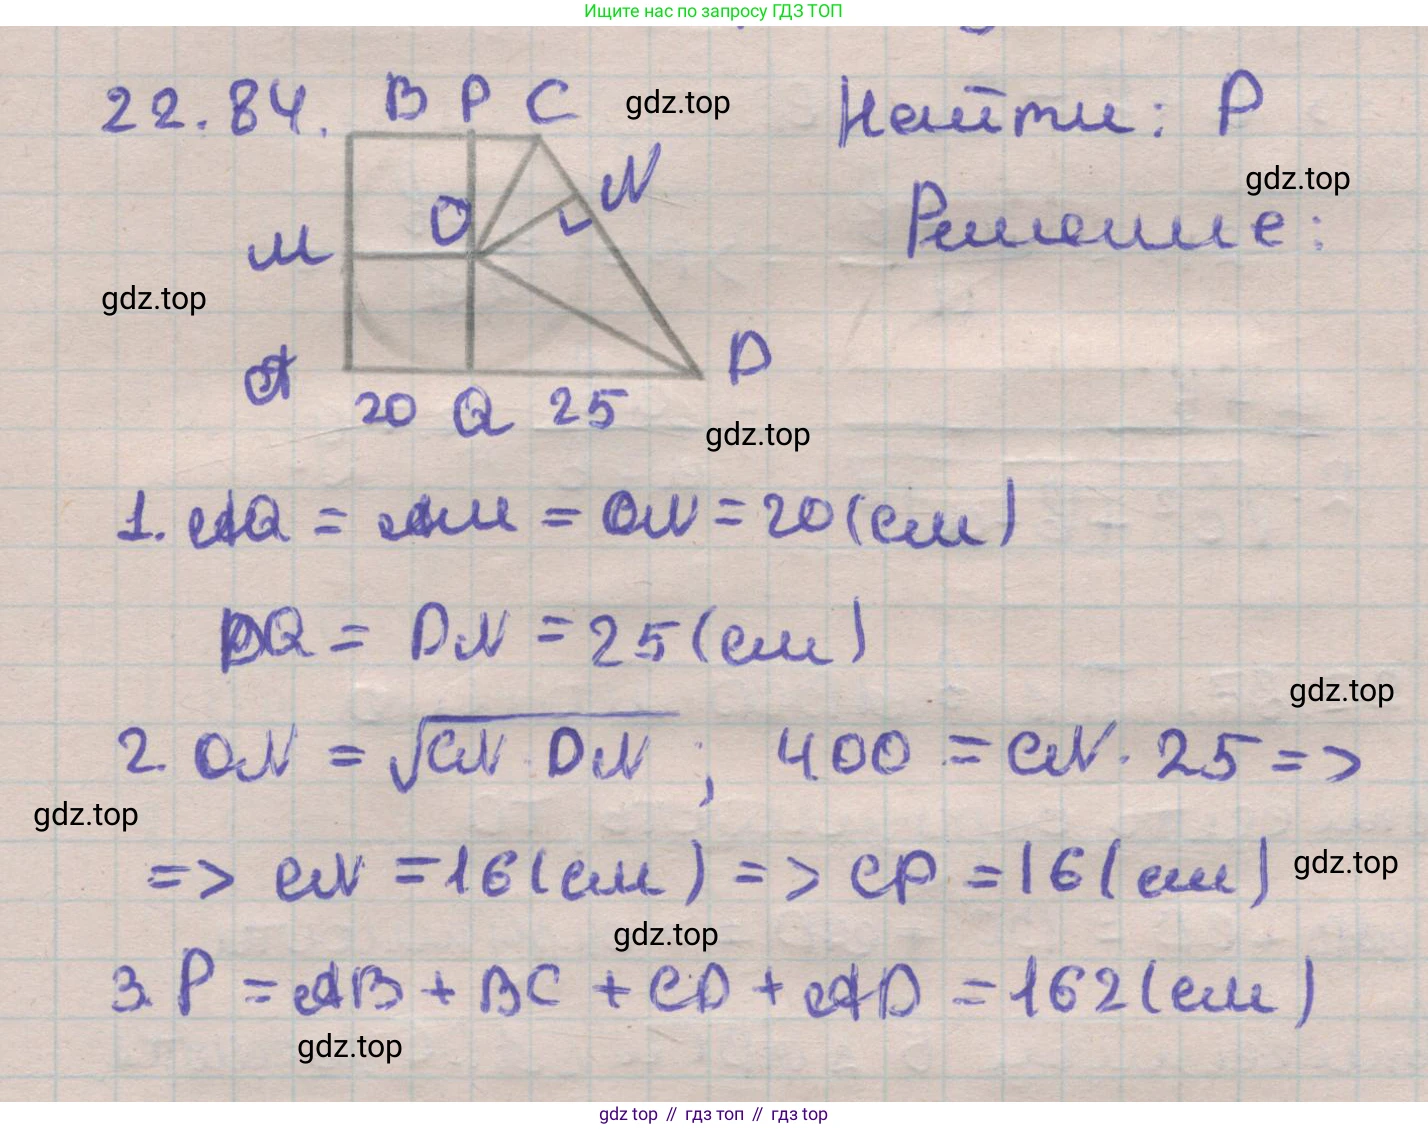 Ищите нас по запросу ГДЗ ТОП
22.84. B P C gdz.top Найти: P
N gdz.top
O Решение:
M
gdz.top
A D
20 Q 25
gdz.top
1. AQ = AM = ON = 20 (см)
DQ = DN = 25 (см)
gdz.top
2. ON = √CN · DN ; 400 = CN · 25 =>
gdz.top
=> CN = 16 (см) => CP = 16 (см) gdz.top
gdz.top
3. P = AB + BC + CD + AD = 162 (см)
gdz.top
gdz top // гдз топ // gdz top